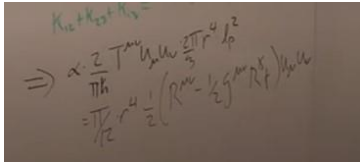 K₁₂ + K₂₃ + K₁₃ =
⇒ α · 2/(πħ) T^{μν} u_μ u_ν · 2/3 r⁴ l_p²
= π/12 r⁴ 1/2 (R^{μν} - 1/2 g^{μν} R^γ_γ) u_μ u_ν